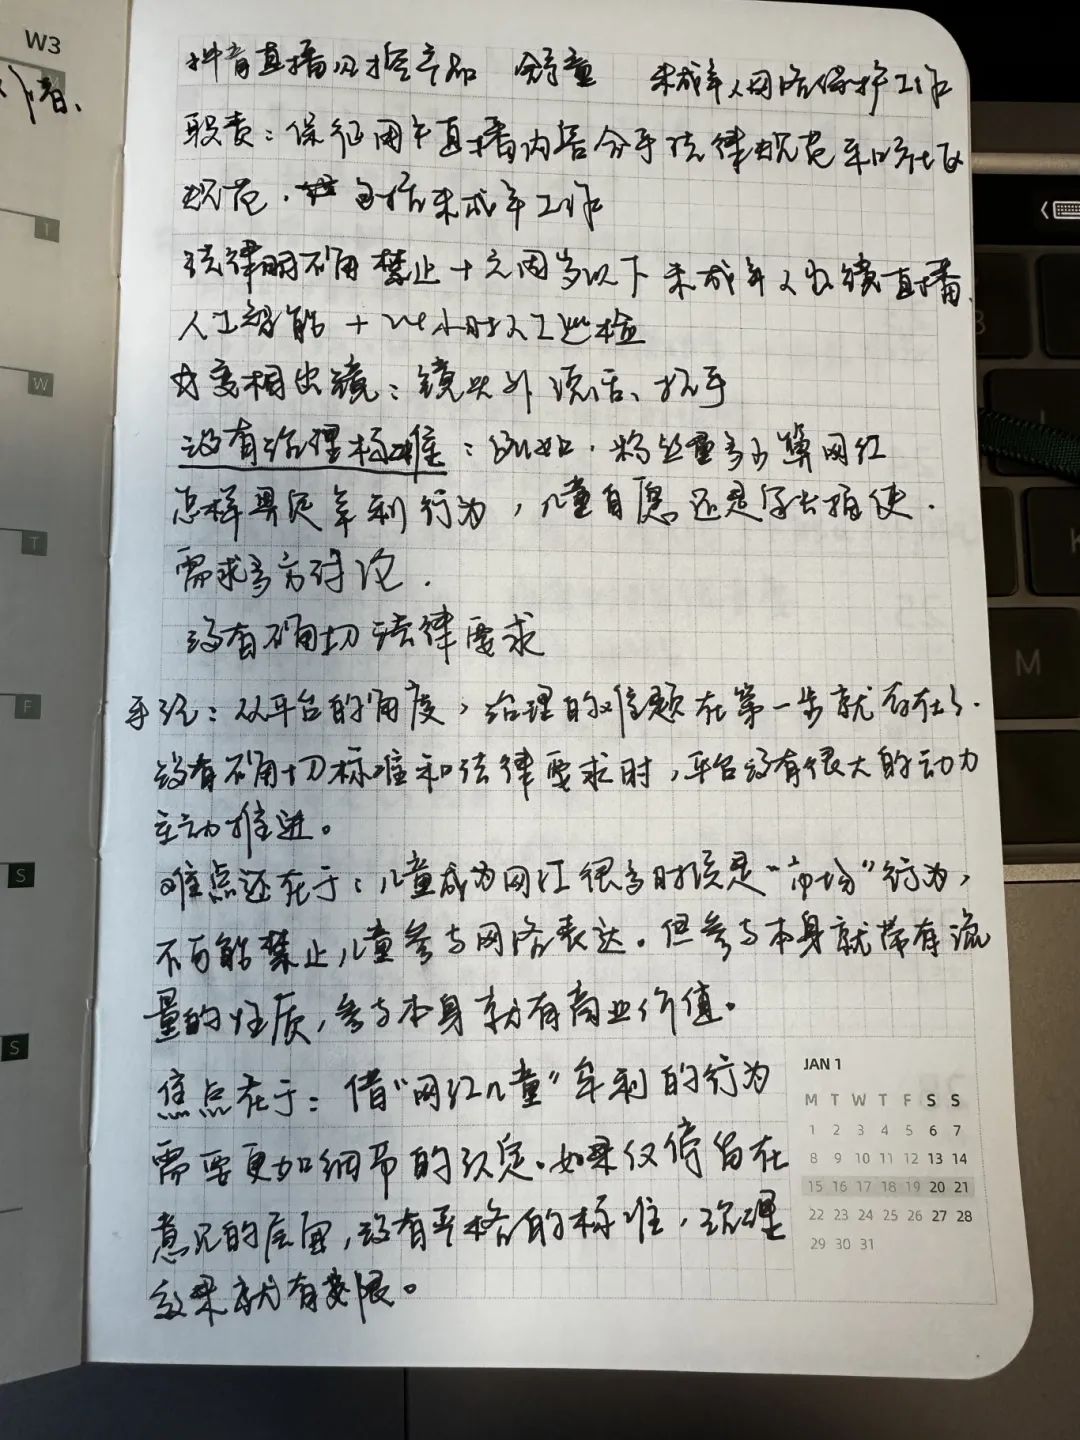 W3
抖音直播风控产品 未成年人网络保护工作
职责：保证用户直播内容合乎法律规范和社区
规范. 包括未成年工作
法律明确禁止十六周岁以下未成年人出镜直播.
人工智能＋24小时人工巡检
变相出镜：镜头外说话、招手
没有治理标准：例如. 粉丝量多少算网红
怎样界定牟利行为，儿童自愿还是家长指使.
需求多方讨论.
没有确切法律要求
手记：从平台的角度，治理的难题在第一步就存在了.
没有确切标准和法律要求时，平台没有很大的动力
主动推进。
难点还在于：儿童成为网红很多时候是“市场”行为，
不可能禁止儿童参与网络表达。但参与本身就带有流
量的性质，参与本身就有商业价值。
焦点在于：借“网红儿童”牟利的行为
需要更加细节的认定。如果仅停留在
意见的层面，没有严格的标准，治理
效果就有限。
T
W
T
F
S
S
JAN 1
M T W T F S S
1 2 3 4 5 6 7
8 9 10 11 12 13 14
15 16 17 18 19 20 21
22 23 24 25 26 27 28
29 30 31
M